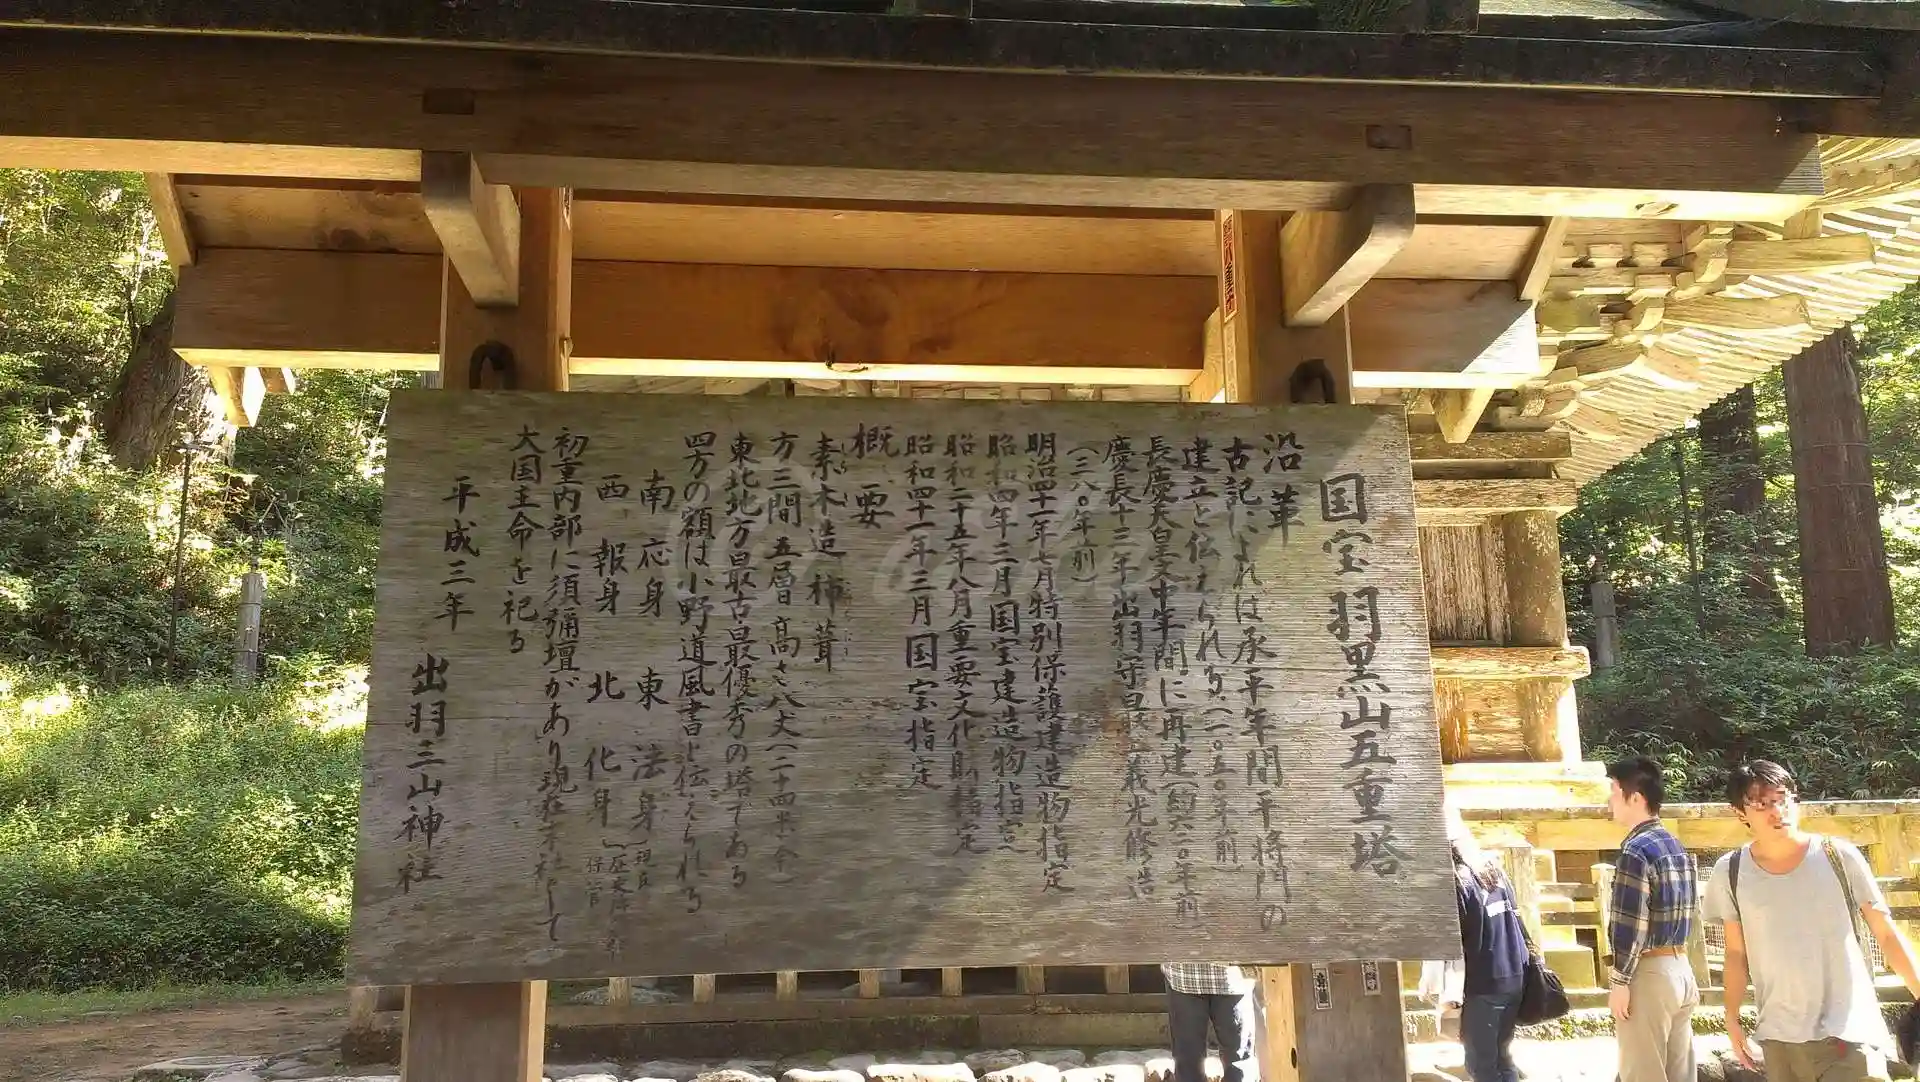 国宝羽黒山五重塔
沿革
古記によれば承平年間平将門の
建立と伝えられる(一〇五〇年前)
長慶天皇文中年間に再建(約六一〇年前)
慶長十三年出羽守最上義光修造
(三八〇年前)
明治四十一年七月特別保護建造物指定
昭和四年三月国宝建造物指定
昭和二十五年八月重要文化財指定
昭和四十一年三月国宝指定
概要
素木造柿葺
方三間五層日高さ八丈(二十四米余)
東北地方最古最優秀の塔である
四方の額は小野道風書と伝えられる
南応身 東法身
西報身 北化身
保管
初重内部に須彌壇があり現在末社として
大国主命を祀る
平成三年 出羽三山神社